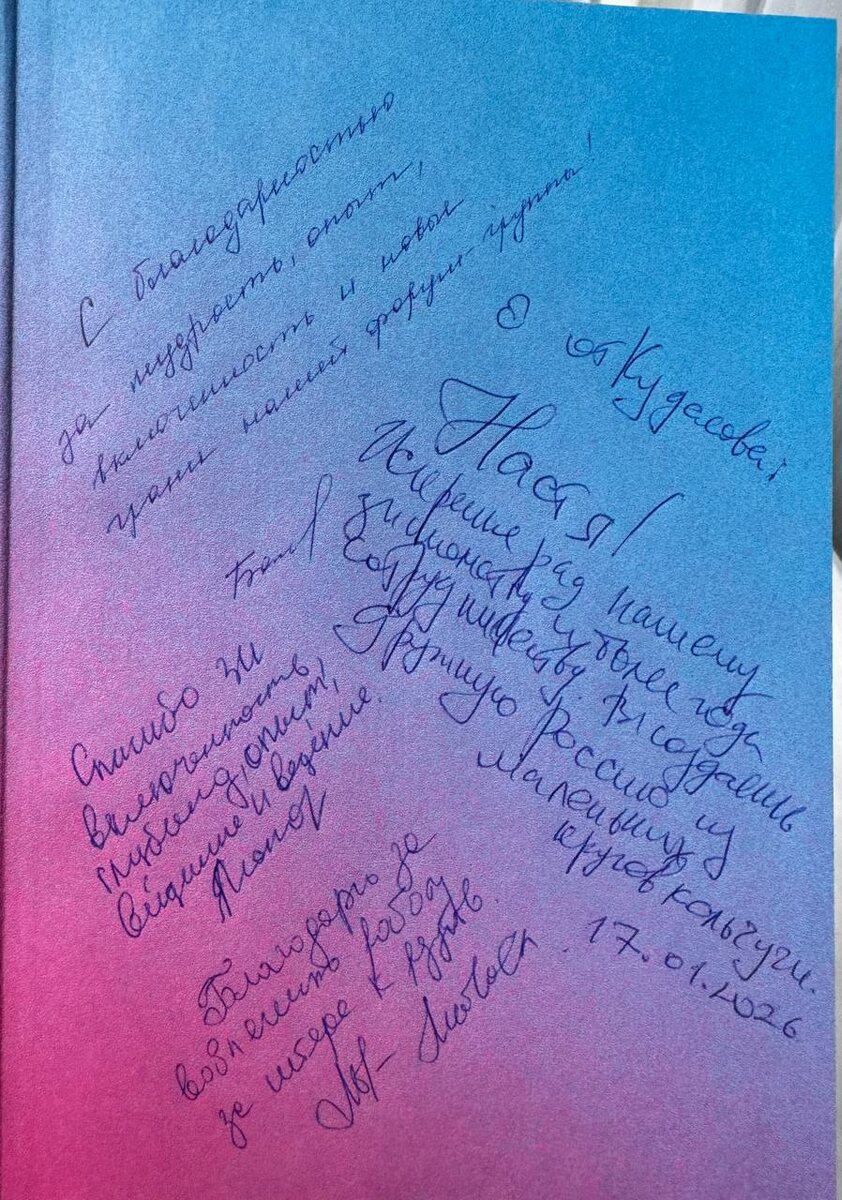 С благодарностью
за мудрость, опыт,
включенность и новые
грани нашей форум-группы!
от Кудасовой
Настя!
Искренне рад нашему
знакомству и более года
сотрудничеству. Вы создаёшь
дружную Россию из
маленьких
кругов кольчуги.
17.01.2026
Спасибо за
включенность,
глубину, опыт,
видение и ведение.
Благодарю за
работу